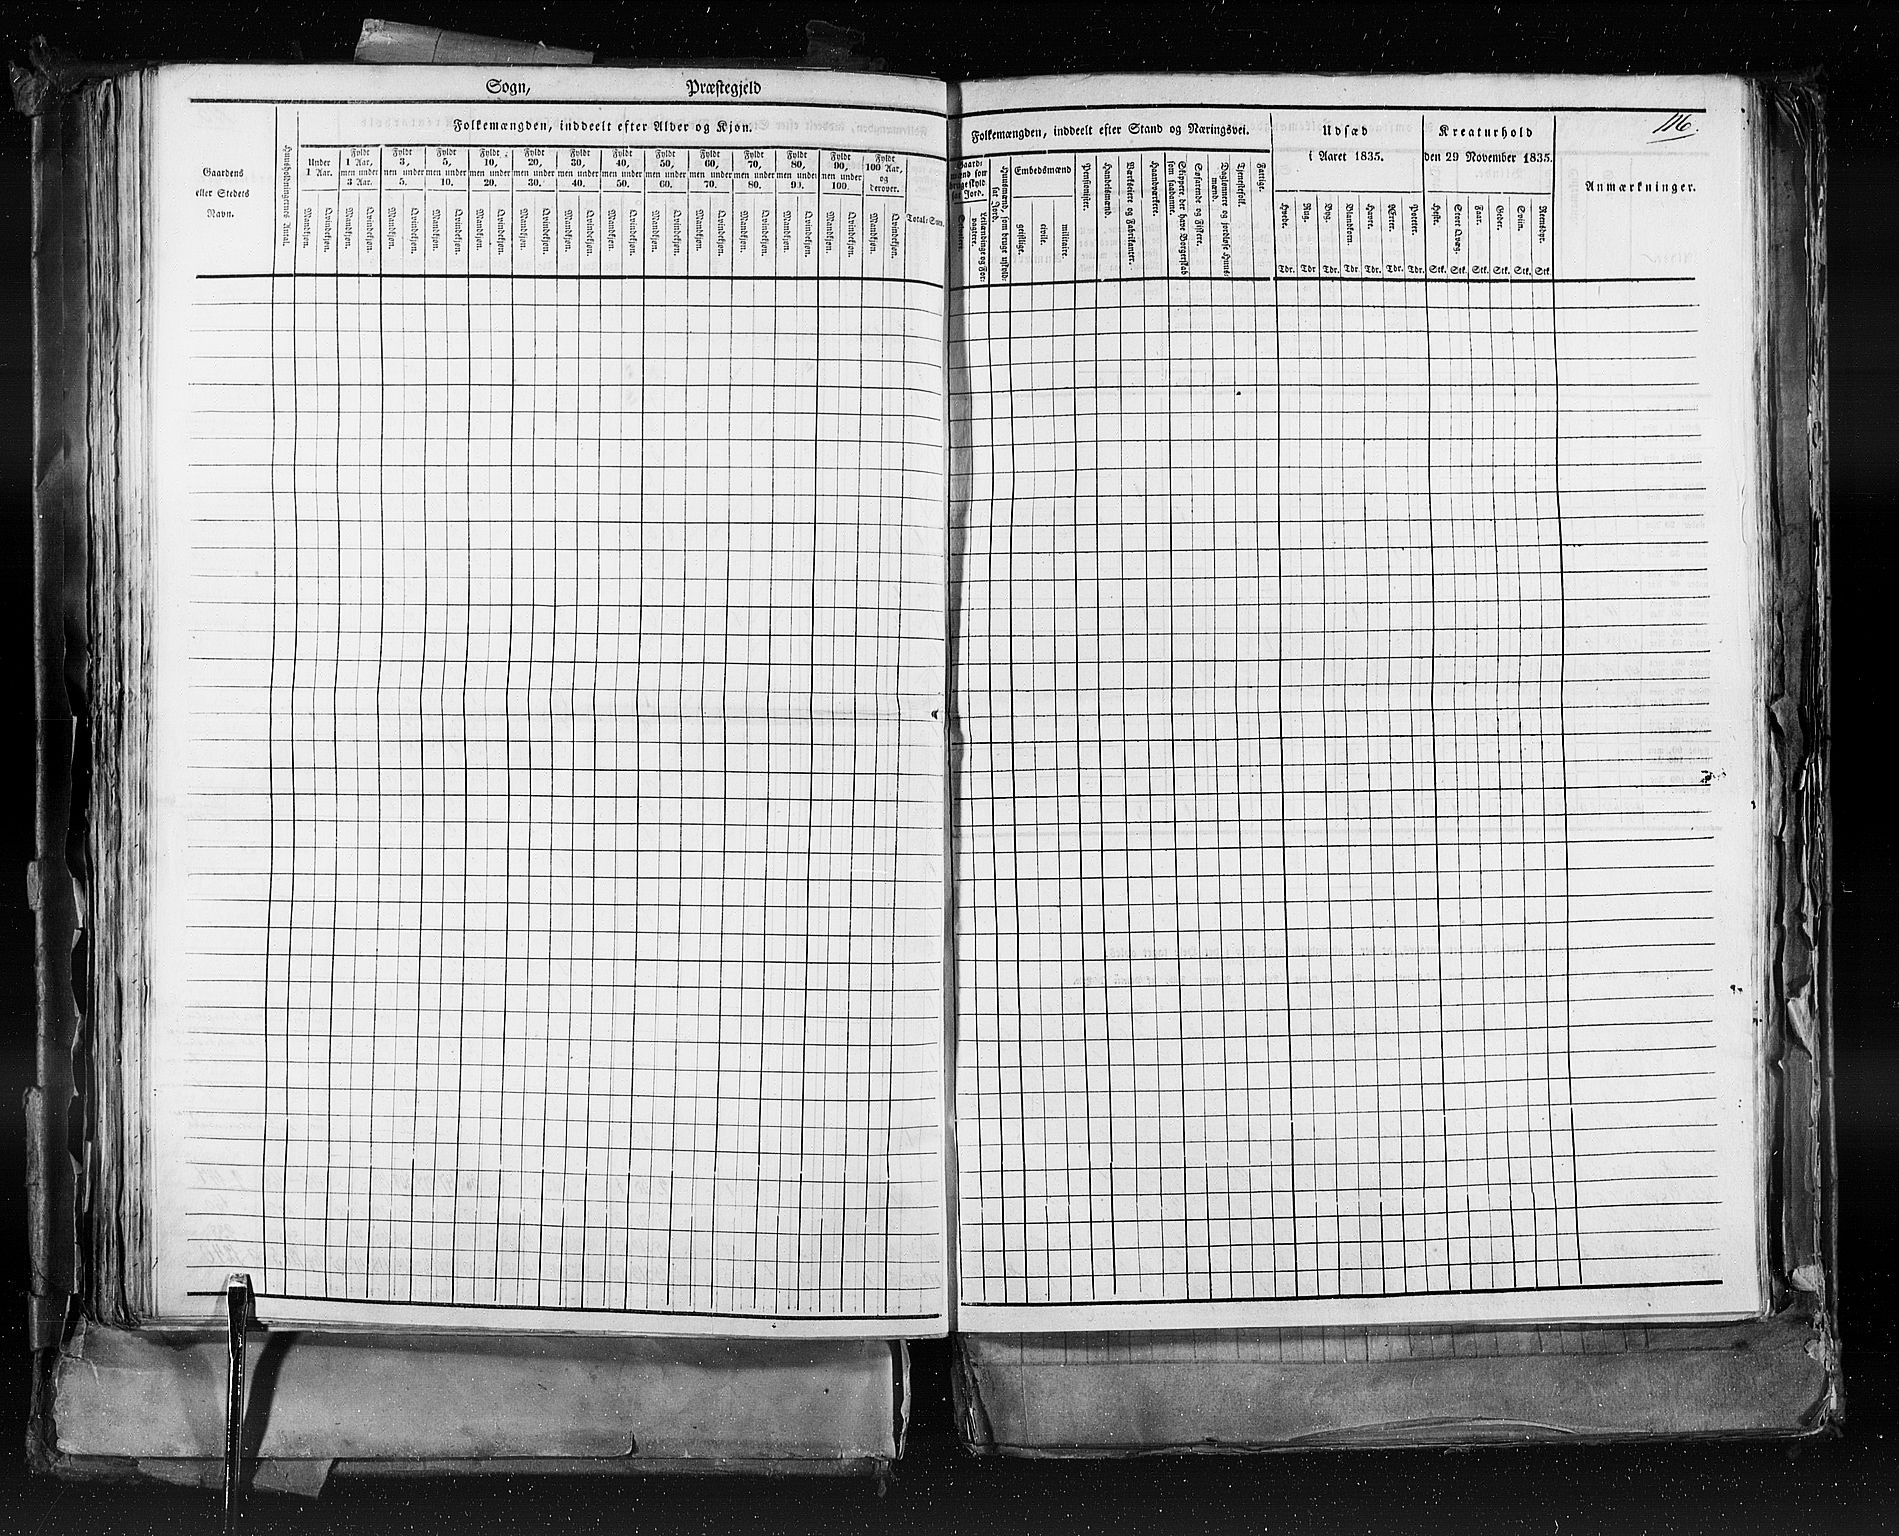 Sogn, Præstegjeld
116.
Folkemængden, inddeelt efter Alder og Kjøn.
Gaardens eller Stedets Navn.
Huusholdningernes Antal.
Under 1 Aar.
Fyldt 1 Aar, men under 3 Aar.
Fyldt 3, men under 5.
Fyldt 5, men under 10.
Fyldt 10, men under 20.
Fyldt 20, men under 30.
Fyldt 30, men under 40.
Fyldt 40, men under 50.
Fyldt 50, men under 60.
Fyldt 60, men under 70.
Fyldt 70, men under 80.
Fyldt 80, men under 90.
Fyldt 90, men under 100.
Fyldt 100 Aar, og derover.
Mandkjøn. Qvindekjøn. Mandkjøn. Qvindekjøn. Mandkjøn. Qvindekjøn. Mandkjøn. Qvindekjøn. Mandkjøn. Qvindekjøn. Mandkjøn. Qvindekjøn. Mandkjøn. Qvindekjøn. Mandkjøn. Qvindekjøn. Mandkjøn. Qvindekjøn. Mandkjøn. Qvindekjøn. Mandkjøn. Qvindekjøn. Mandkjøn. Qvindekjøn. Mandkjøn. Qvindekjøn. Mandkjøn. Qvindekjøn.
Total-Sum.
Folkemængden, inddeelt efter Stand og Næringsvei.
Gaardmænd som bruge skyldsat Jord.
Selveiere
Leilændinge og Forpagtere.
Huusmænd som bruge uskyldsat Jord.
Embedsmænd
geistlige.
civile.
militaire.
Pensionister.
Handelsmænd.
Værkseiere og Fabrikanter.
Haandværkere.
Skippere der have Borgerskab som saadanne.
Søfarende og Fiskere.
Daglønnere og jordløse Huusmænd.
Tjenestefolk.
Fattige.
Udsæd
i Aaret 1835.
Hvede. Rug. Byg. Blandkorn. Havre. Ærter. Poteter.
Tdr. Tdr Tdr. Tdr. Tdr. Tdr. Tdr.
Kreaturhold
den 29 November 1835.
Heste. Stort Qvæg. Faar. Geder. Sviin. Rensdyr.
Stk. Stk. Stk. Stk. Stk. Stk
Anmærkninger.